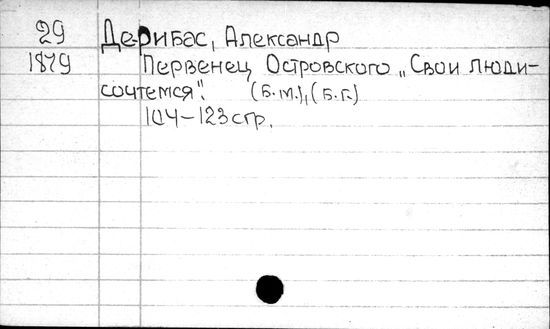 29 Дерибас, Александр
1879 Первенец Островского „Свои люди-
сочтемся". (Б.м.), (Б.г.)
104-123 стр.